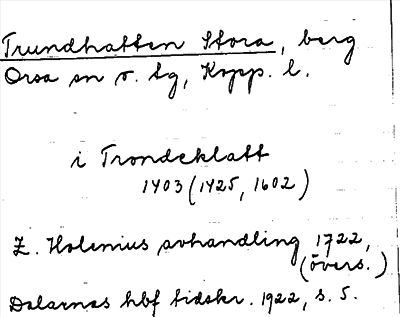 Trundhatten Stora, berg
Orsa sn o. tg, Kopp. l.
i Trondeklatt
1403 (1425, 1602)
Z. Holenius avhandling 1722,
(övers.)
Dalarnas hbf tidskr. 1922, s. 5.